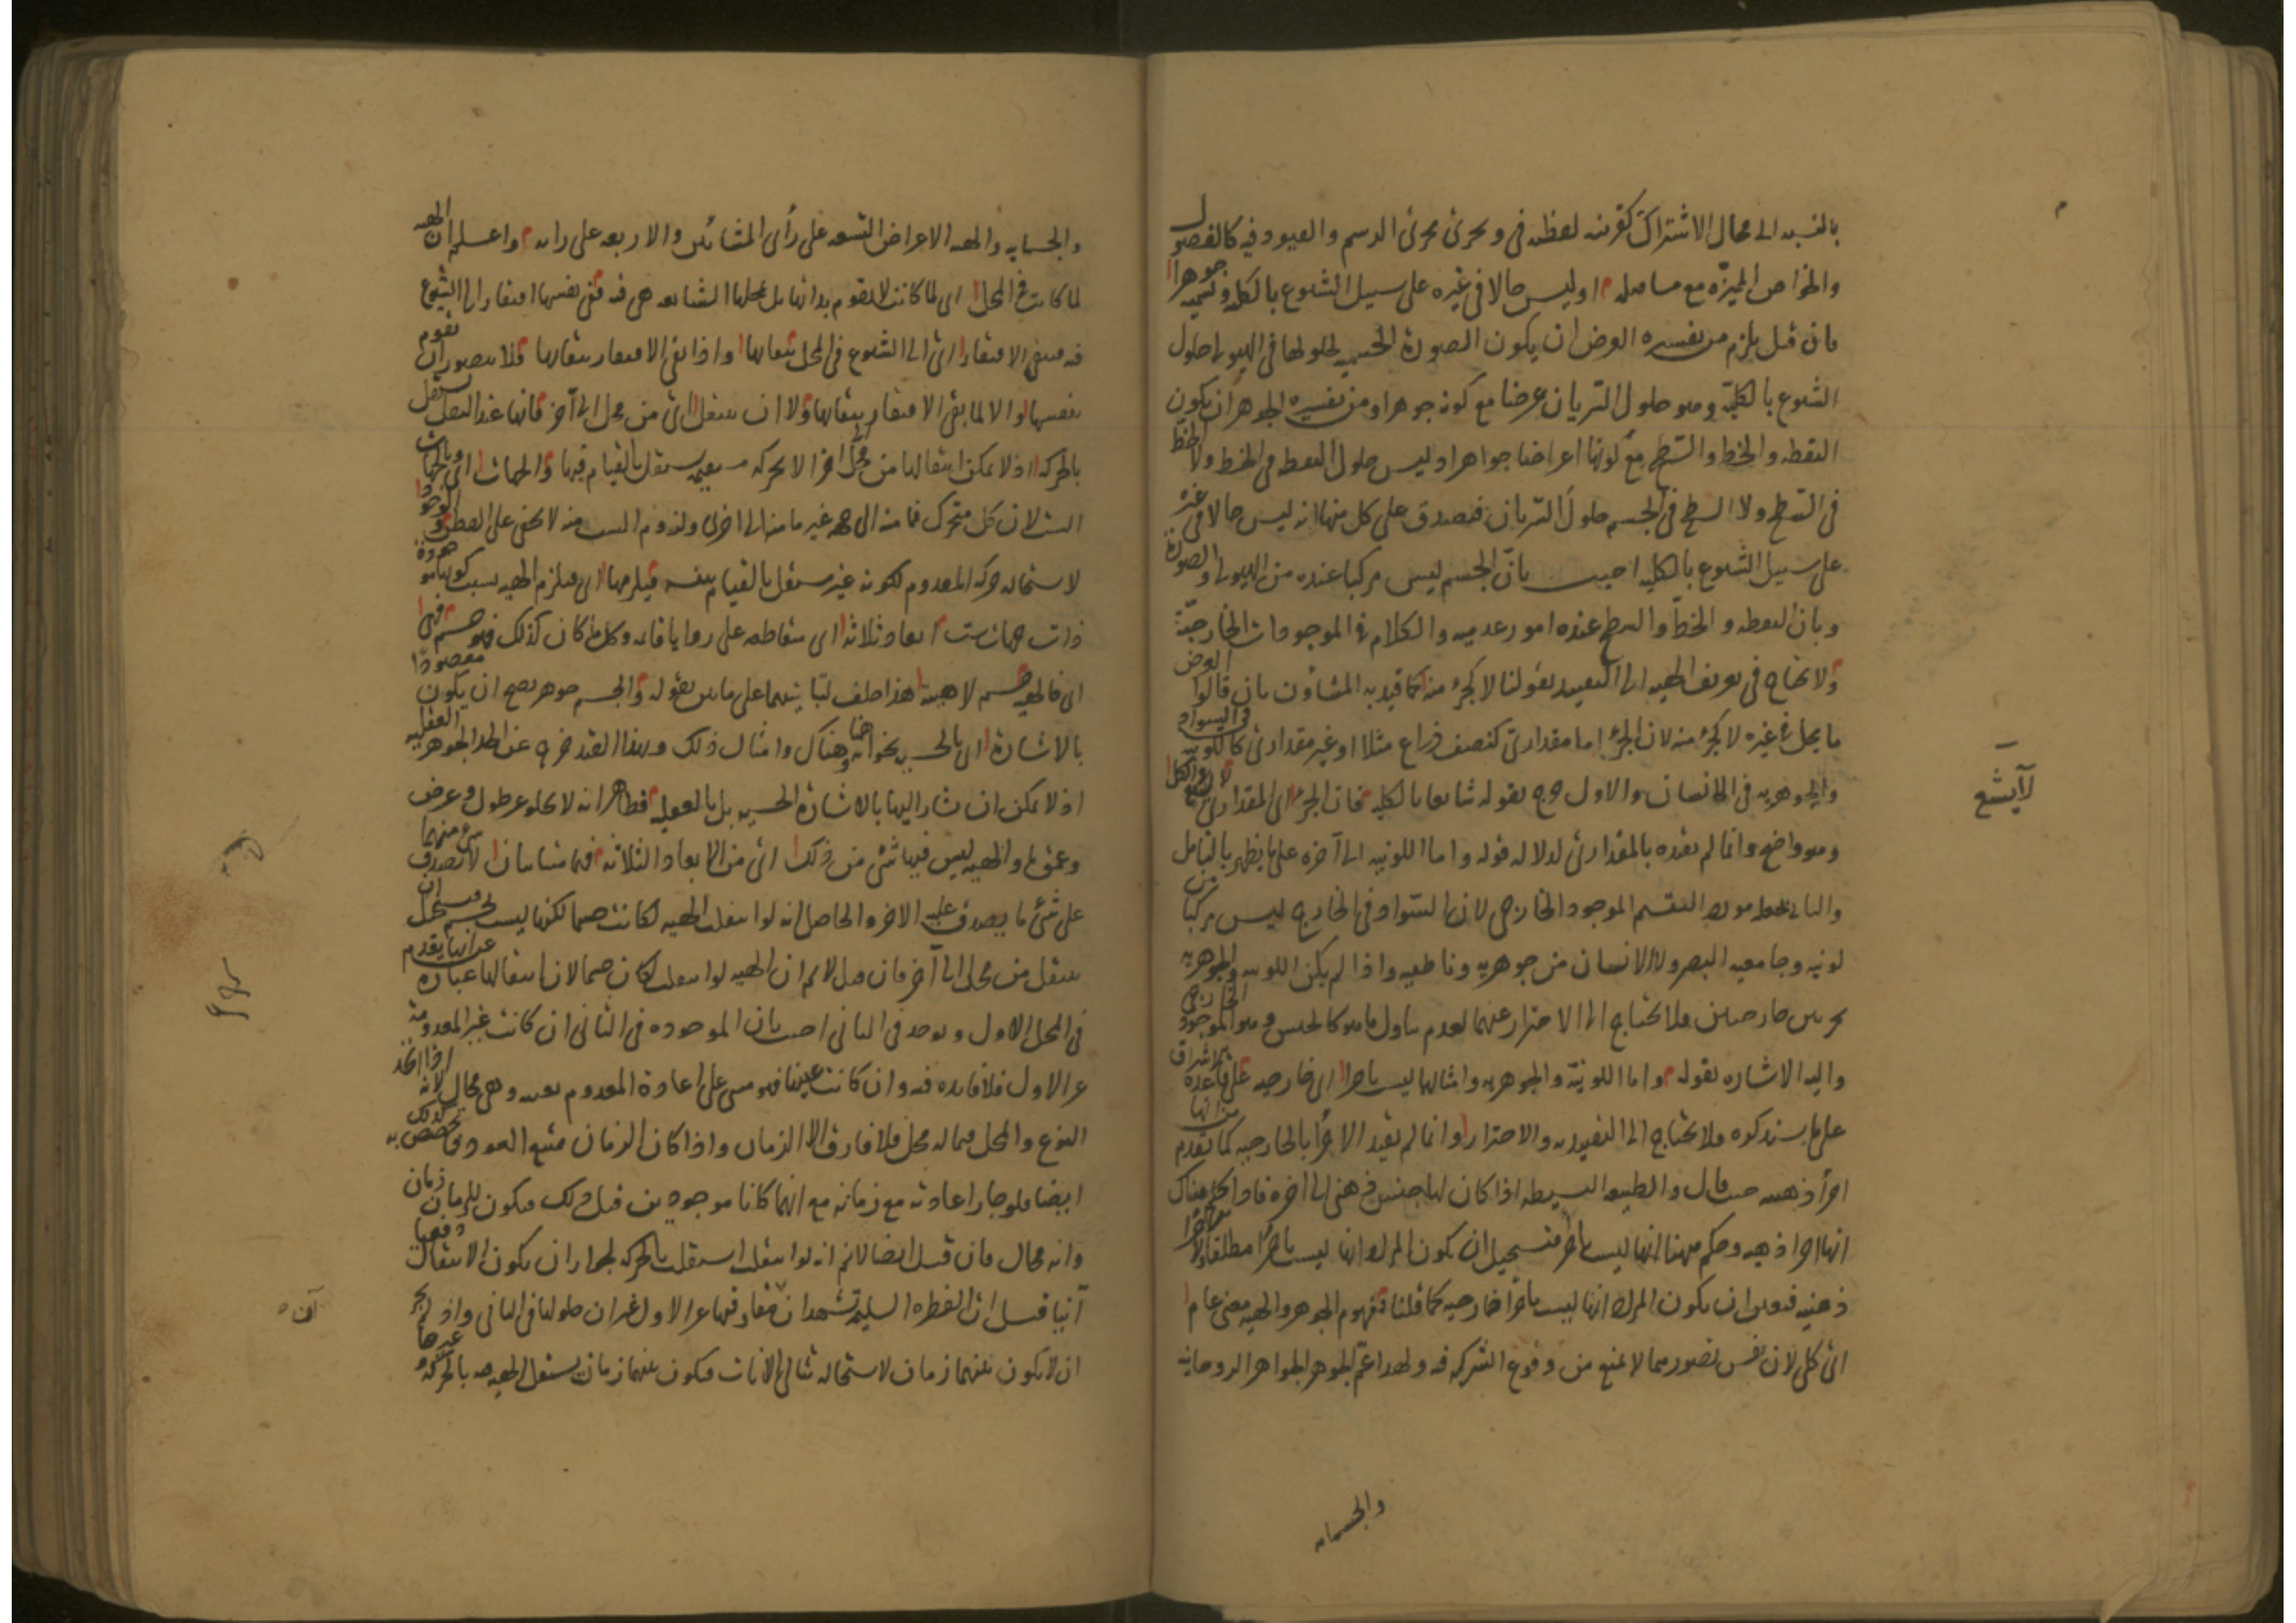 بالنسبه الى محال الاشتراك كقرينه لفظيه في و يجرى مجرى الرسم والقيود فيه كالفصول
والخواص المميزه مع او ليس حالا في غيره على سبيل الشيوع بالكليه و نسميه جوهرا
فان قيل يلزم من تفسيره العرض ان يكون الصورة الجسميه لحلولها في الهيولى حلول
الشيوع بالكليّة وهو حلول السريان عرضا مع كونه جوهرا ومن تفسيره الجوهر ان يكون
النقطه والخط والسطح مع كونها اعراضا جواهر اذ ليس حلول النقطه في الخط ولا الخط
في السطح ولا السطح في الجسم حلول السريان فيصدق على كل منها انه ليس حالا في غيره
على سبيل الشيوع بالكليه اجيب بانّ الجسم ليس مركبا عنده من الهيولى والصورة
وبان النقطه والخط والسطح عنده امور عدميه والكلام في الموجودات الخارجيّة
ولا نحتاج في تعريف الهيه الى التقييد بقولنا لا كجزء منه كما قيد به المشاؤن بان قالوا العرض
ما يحل في غيره لا كجزء منه لان الجزء اما مقدارى كنصف ذراع مثلا او غير مقدارى كاللونيه في السواد
والجوهريه في الانسان والاول خرج بقوله شايعا بالكليه فان الجزء اى المقدارى لا يشيع في الكل
وهو واضح وانما لم يقيده بالمقدارى لدلاله قوله واما اللونيه الى آخره على ما يظهر بالتامل
والثانى التقسم الموجود الخارجى لان السواد في الخارج ليس مركبا من
لونيه وجامعيه البصر ولا الانسان من جوهريه وناطقيه واذا لم يكن اللونيه والجوهريه
جزئين خارجيين فلا يحتاج الى الاحتراز عنهما لعدم تناول ما هو كالجنس وهو الموجود الخارجى
واليه الاشاره بقوله واما اللونيّة والجوهريه وامثالها ليست باجزا اى خارجيه على قاعدة الاشراق
على ما سنذكره فلا يحتاج الى التقييد به والاحتراز وانما لم يقيد الاجزا بالخارجيه كما تقدم من انها
اجزأ ذهنيه حيث قال والطبيعه البسيطه اذا كان لها جنس ذهنى الى اخره فاذا حكم هناك
انها اجزا ذهنيه وحكم ههنا انها ليست باجزا فيستحيل ان يكون المراد انها ليست باجزا مطلقا
ذهنيه فتعين ان يكون المراد انها ليست باجزا خارجيه كما قلنا فمفهوم الجوهر والهيه معنى عام
اى كلى لان نفس تصورهما لا يمنع من وقوع الشركه فيه ولهذا عمّ الجوهر الجواهر الروحانيه
والجسمانيه
لا يشيع
والجسمانيه والهيه الاعراض التسعه على رأى المشائين والاربعه على رايه واعلم ان الهيه
لما كانت في المحل اى لما كانت لا تقوم بذاتها بل بمحلها الشايعه هى فيه ففى نفسها افتقار الى الشيوع
فيه فيبقى الافتقار اى الى الشيوع في المحل ببقائها واذا بقى الافتقار ببقائها فلا يتصور ان تقوم
بنفسها والا لما بقى الافتقار ببقائها ولا ان ينتقل اى من محل الى آخر فانها عند النقل تستقل
بالحركه اذ لا يمكن انتقالها من محل الى اخر الا بحركه تستقل بالقيام فيها والجهات اى وبالجهات
الست لان كل متحرك فما منه الى جهه غير ما منه الى اخرى ولزوم الست منه لا يخفى على الفطن والوجود
لاستحاله حركه المعدوم لكونه غير مستقل بالقيام بنفسه فيلزمها اى فيلزم الهيه بسبب كونها موجودة
ذات جهات ست ابعاد ثلاثه اى متقاطعه على زوايا قائمه وكل ما كان كذلك فهو جسم فهى
اى فالهيه جسم لا هيئة هذا خلف لتباينهما على ما بين بقوله والجسم جوهر يصح ان يكون مقصودا
بالاشارة اى بالحسيه بخو انه ههنا وهناك وامثال ذلك وبهذا القيد خرج عن الحد الجواهر العقليه
اذ لا يمكن ان يشار اليها بالاشارة الحسيه بل بالعقليه فظاهر انه لا يخلو عن طول وعرض
وعمق ما والهيه ليس فيها شئ من ذلك اى من الابعاد الثلاثه فهما متباينان لا يصدق شئ منهما
على شئ ما يصدق عليه الاخر والحاصل انه لو انتقلت الهيه لكانت جسما لكنها ليست بجسم فيستحيل ان
ينتقل من محل الى آخر فان قيل لا نم ان الهيه لو انتقلت لكان جسما لان انتقالها عبارة عن انها يقدم
في المحل الاول و توجد في الثانى اجيب بان الموجوده في الثانى ان كانت غير المعدومة
عن الاول فلا فايده فيه وان كانت عينها فهو مبنى على اعادة المعدوم بعينه وهى محال لانه اذا اتحد
النوع والمحل فيما له محل فلا فارق الا الزمان واذا كان الزمان ممتنع العود فكذلك ما تخصص به
ايضا فلو جاز اعادته مع زمانه مع انهما كانا موجودين قبل ذلك فيكون للزمان زمان
وانه محال فان قيل ايضا لا نم انه لو انتقلت استقلت بالحركه لجواز ان يكون الانتقال دفعيا
آنيا قيل ان الفطره السليمه تشهد ان مفارقتها عن الاول غير آن حلولها في الثانى واذ لم يجز
ان لا يكون بينهما زمان لاستحاله تتالى الانات فيكون بينهما زمان يستقل الهيه بالحركه وغيرها